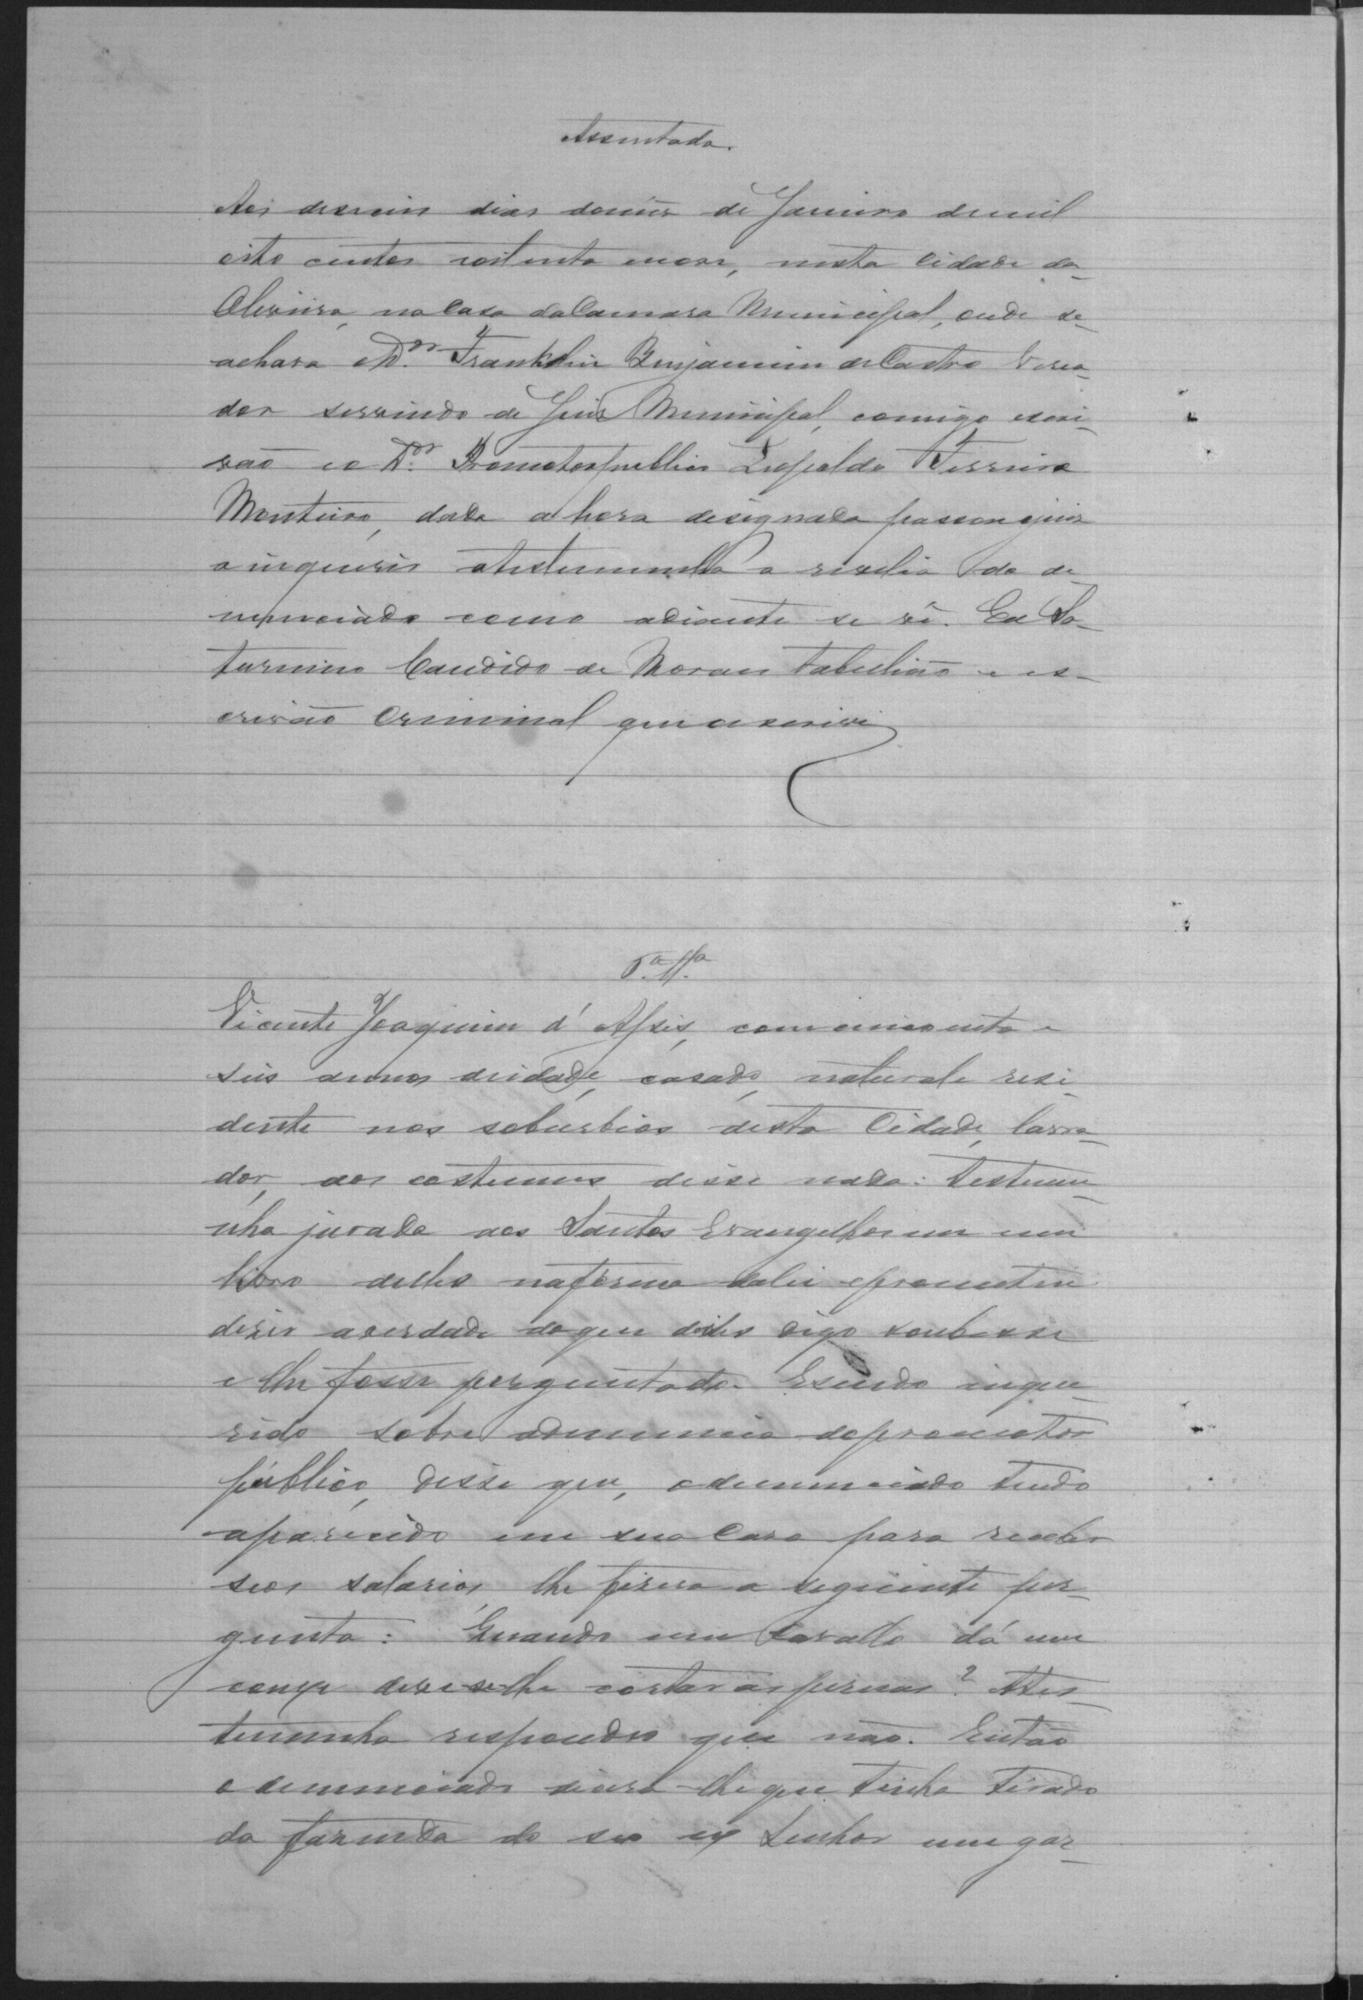 Assentada.
Aos deseseis dias domez de Janeiro demil
oito centos oitenta enove, nesta Cidade da
Oliveira, na Casa da Camara Municipal, onde se
achava o Dor. Franklin Benjamim de Castro Verea-
dor servindo de Juiz Municipal, comigo escri-
vão eo Dor. Promotor publico Leopoldo Ferreira
Monteiro, dada a hora designada passou ojuiz
a inquerir atestemunha a revelia do de
nunciado como adiante se vê. Eu Sa-
turnino Candido de Moraes tabellião e es-
crivão Criminal que o escrivi
5.a Ta.
Vicente Joaquim d'Assis, com cincoenta e
seis annos deidade, casado, natural e resi
dente nos soburbios desta Cidade, lavra-
dor, aos costumes disse nada: testemu-
nha jurada aos Santos Evangelhos em um
livro delles naforma dalei eprometeu
dizer averdade doque delles digo soubesse
e lhe fosse perguntado. Esendo inque-
rido sobre adenuncia dopromotor
público, disse que, o denunciado tendo
aparecido em sua Casa para receber
seos salarios, lhe fizera a seguinte per-
gunta: Quando um Cavallo dá um
couce deve se lhe cortar as pernas? Ates-
temunha respondeo que não. Então
o denunciado dissera-lhe que tinha tirado
da fazenda do seo ex Senhor um gar-